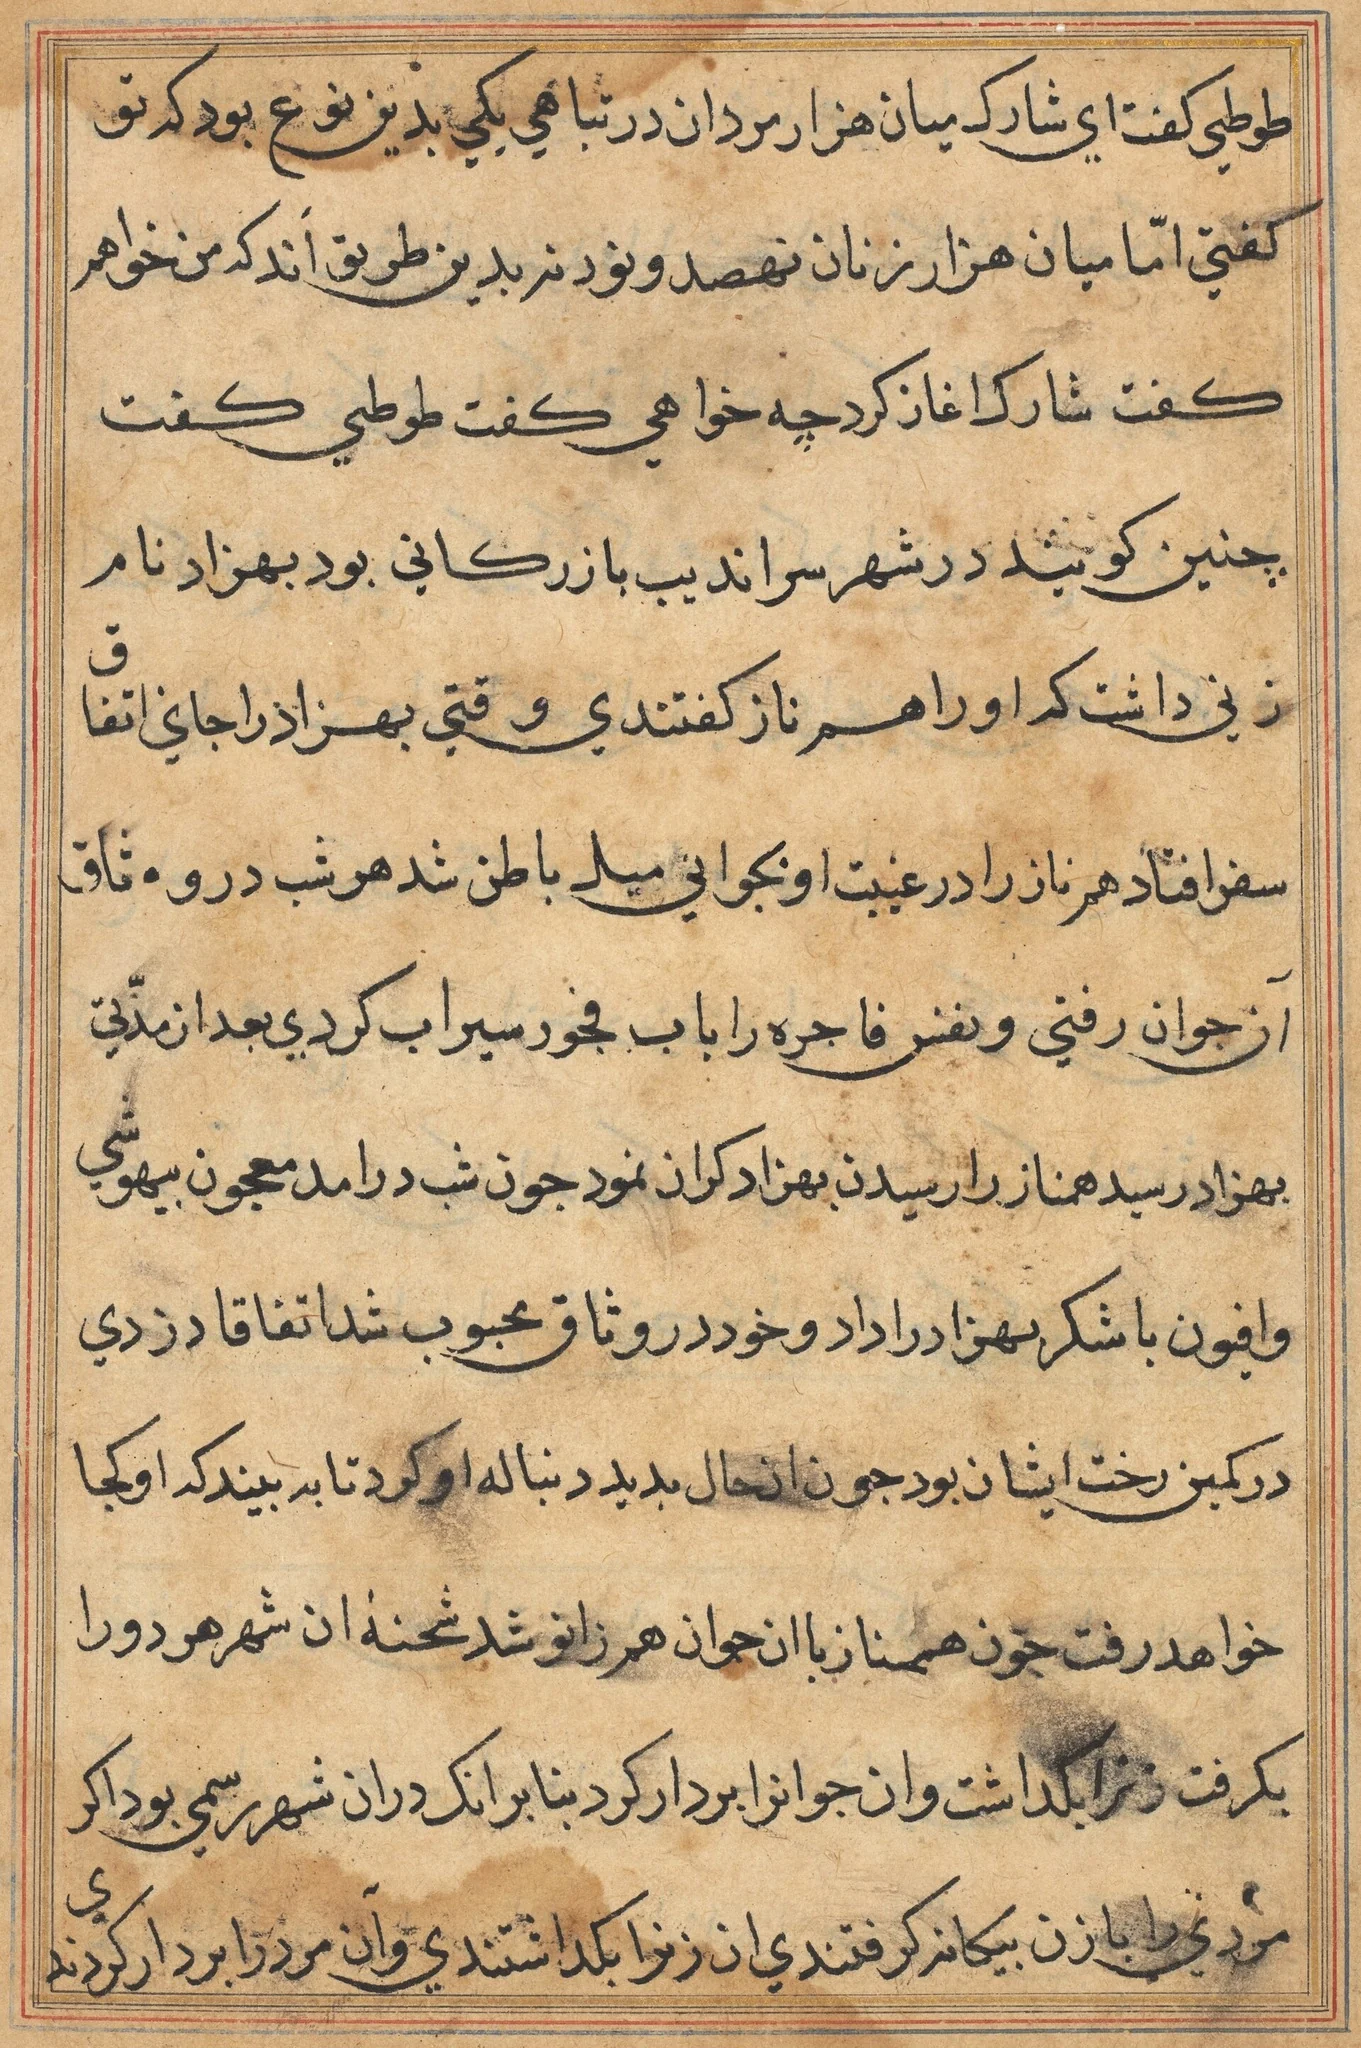 طوطي کفت اي شارک ميان هزار مردان در تباهي يکي بذين نوع بود که تو
کفتي امّا ميان هزار زنان نهصد و نود نه بدين طريق اند که من خواهم
کفت شارک اغاز کرد چه خواهي کفت طوطي کفت
چنين کويند در شهر سرانديب بازرکاني بود بهزاد نام
زني داشت که او را هم ناز کفتندي وقتي بهزاذ را جاي اتفاق
سفر افتاد هم ناز را در غيبت او بجواني ميل باطن شد هر شب در وثاق
آن جوان رفتي و نفس فاجره را باب فجور سيراب کردي بعد از مدّتي
بهزاد رسيد همناز را رسيدن بهزاد کران نمود جون شب درامد معجون بيهوشي
و افيون با شکر بهزاد را داد و خود در وثاق محبوب شد اتفاقا دزدي
در کمين رخت ايشان بود جون ان حال بديد دنباله او کرد تا به بيند که او کجا
خواهد رفت جون همناز با ان جوان هم زانو شد شحنهٔ ان شهر هر دو را
بکرفت زنرا بکداشت و ان جوانرا بردار کرد بنابر انک دران شهر رسمي بود اکر
مردي را با زن بيکانه کرفتندي ان زنرا بکداشتندي و آن مرد را بردار کردندي